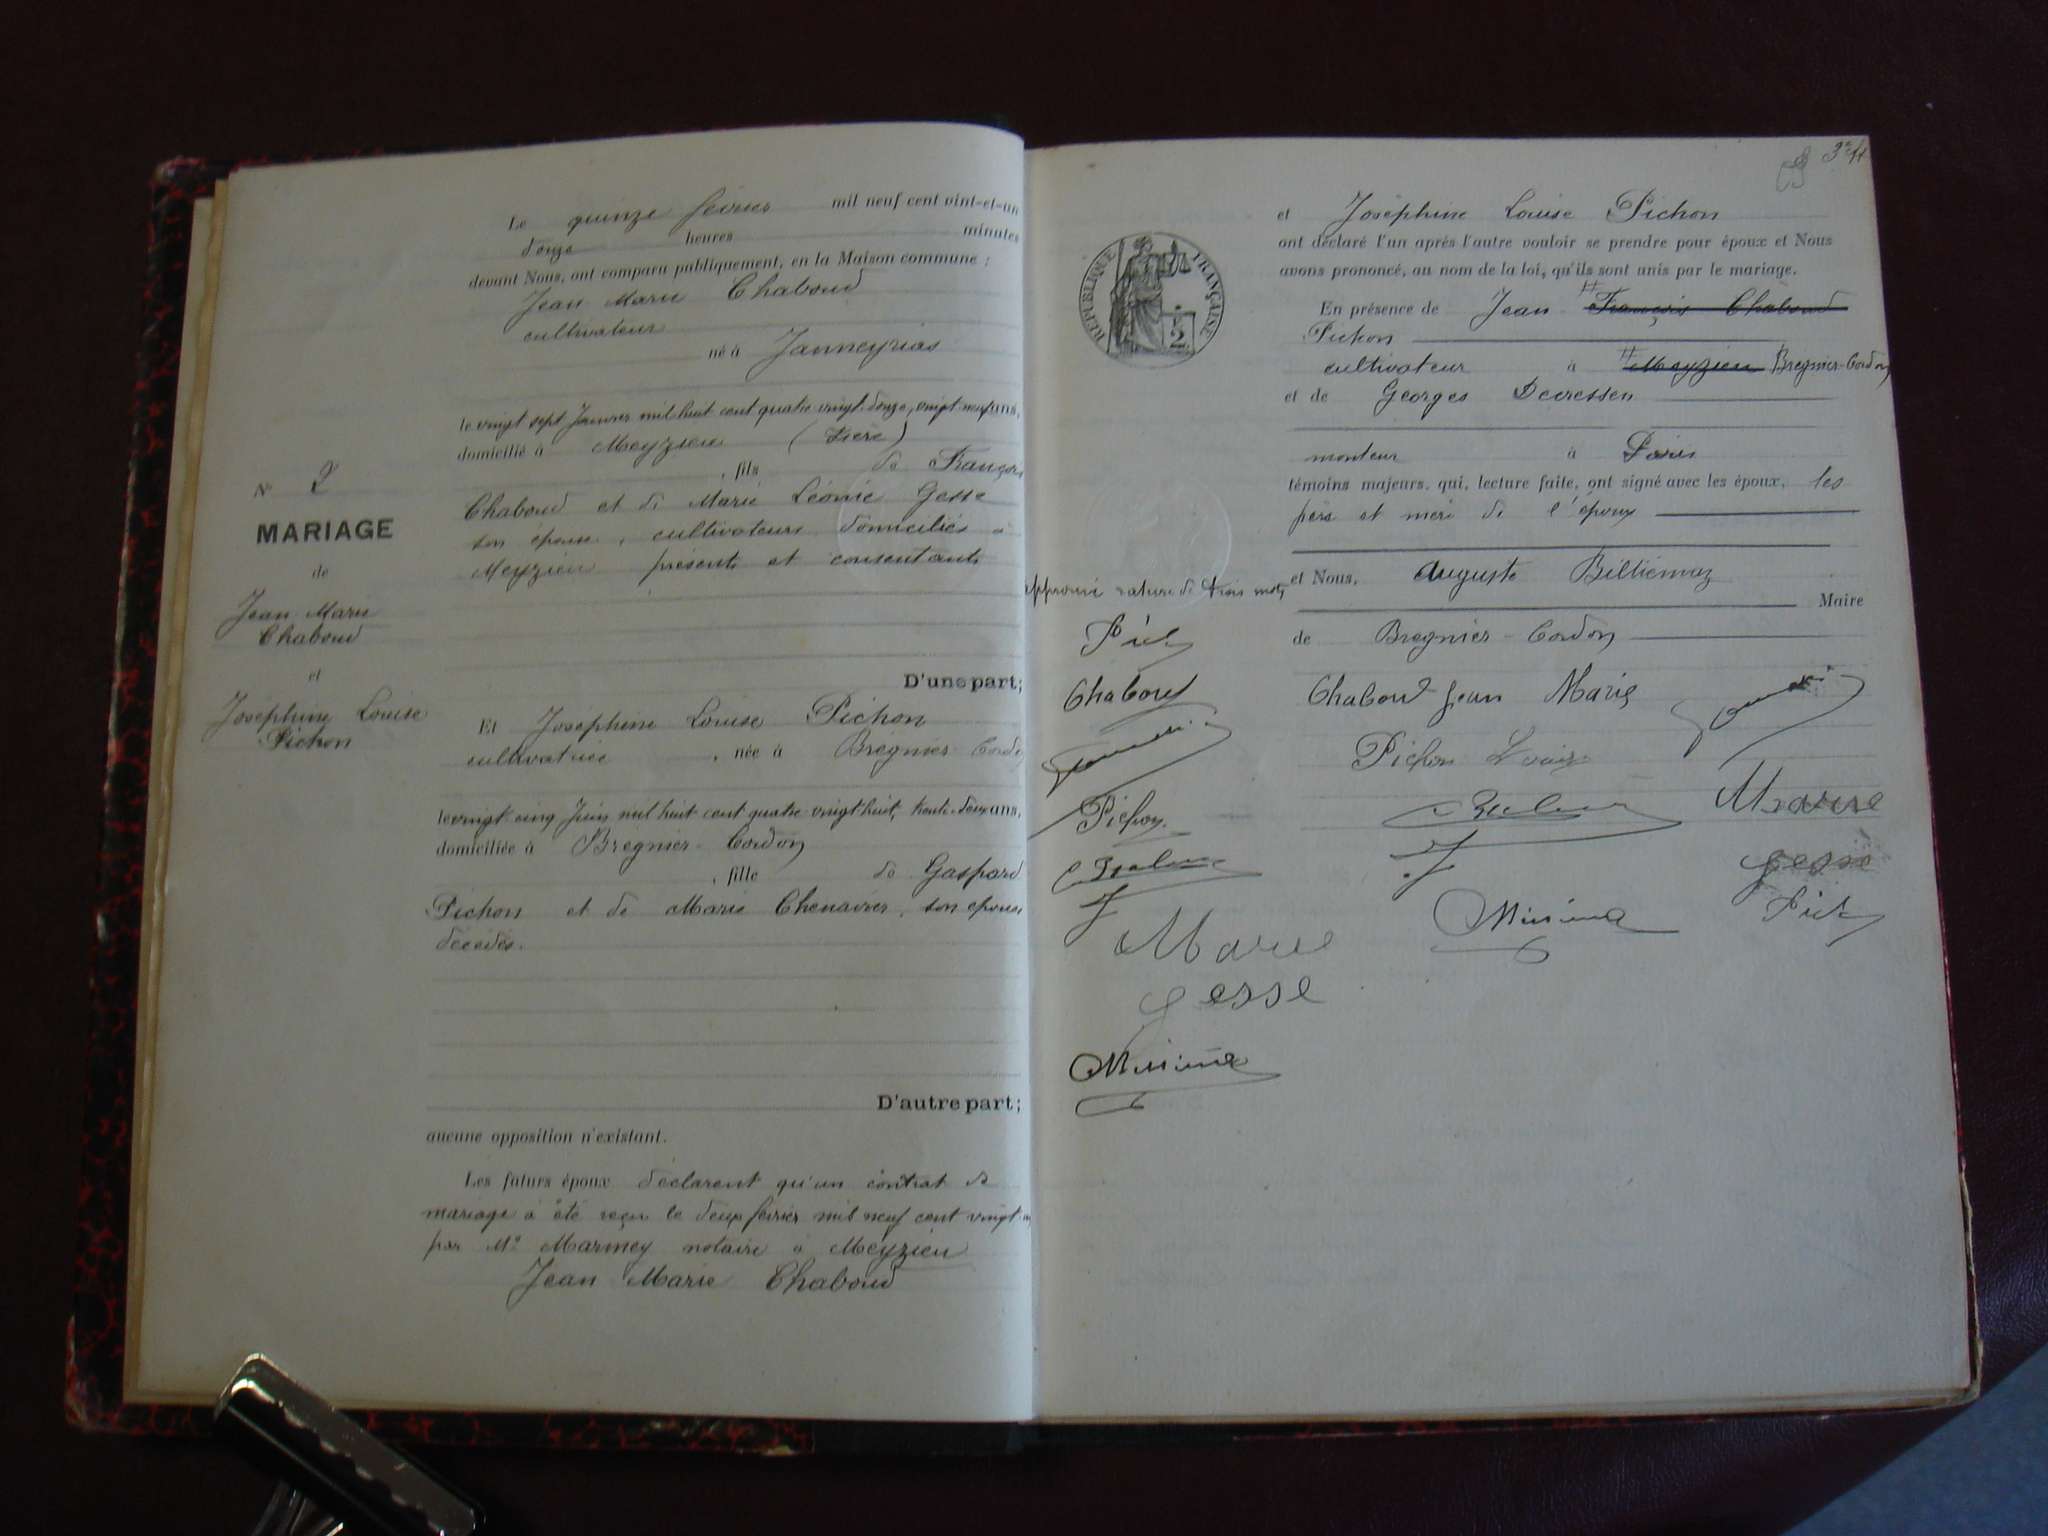 N° 2
MARIAGE
de
Jean Marie
Chaboud
et
Joséphine Louise
Pichon
Le quinze février mil neuf cent vint-et-un
douze heures minutes
devant Nous, ont comparu publiquement, en la Maison commune :
Jean Marie Chaboud
cultivateur
né à Janneyrias
le vingt sept Janvier mil huit cent quatre vingt douze, vingt neuf ans,
domicilié à Meyzieu (Isère)
, fils de François
Chaboud et de Marie Léonie Gesse
son épouse, cultivateurs domiciliés à
Meyzieu présents et consentants
D'une part;
Et Joséphine Louise Pichon
cultivatrice , née à Brégnier-Cordon
le vingt cinq Juin mil huit cent quatre vingt huit, trente-deux ans,
domiciliée à Brégnier-Cordon
, fille de Gaspard
Pichon et de Marie Chenavier, son épouse
décédés.
D'autre part;
aucune opposition n'existant.
Les futurs époux déclarent qu'un contrat de
mariage a été reçu le deux février mil neuf cent vingt-un
par Me Marmey notaire à Meyzieu
Jean Marie Chaboud
324
et Joséphine Louise Pichon
ont déclaré l'un après l'autre vouloir se prendre pour époux et Nous
avons prononcé, au nom de la loi, qu'ils sont unis par le mariage.
RÉPUBLIQUE FRANÇAISE
En présence de Jean François Chaboud
Pichon
cultivateur à Meyzieu Brégnier-Cordon
et de Georges Devressen
monteur à Paris
témoins majeurs, qui, lecture faite, ont signé avec les époux, les
père et mère de l'époux
et Nous, Auguste Billiemaz
Maire
de Brégnier-Cordon
approuvé rature de trois mots
Chaboud
Pichon
Marie
Gesse
Chaboud Jean Marie
Pichon Louise
Marie
Gesse